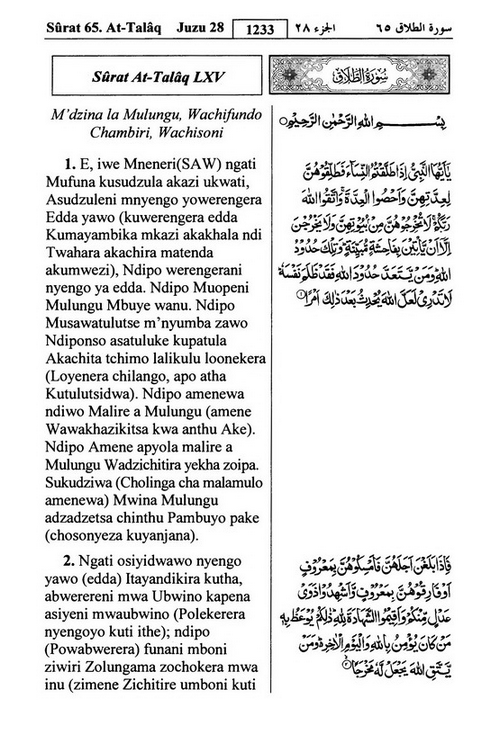 Sûrat 65. At-Talâq Juzu 28 1233 الجزء ٢٨ سورة الطلاق ٦٥
Sûrat At-Talâq LXV
سُورَةُ الطَّلَاقِ
M’dzina la Mulungu, Wachifundo
Chambiri, Wachisoni
1. E, iwe Mneneri(SAW) ngati
Mufuna kusudzula akazi ukwati,
Asudzuleni mnyengo yowerengera
Edda yawo (kuwerengera edda
Kumayambika mkazi akakhala ndi
Twahara akachira matenda
akumwezi), Ndipo werengerani
nyengo ya edda. Ndipo Muopeni
Mulungu Mbuye wanu. Ndipo
Musawatulutse m’nyumba zawo
Ndiponso asatuluke kupatula
Akachita tchimo lalikulu loonekera
(Loyenera chilango, apo atha
Kutulutsidwa). Ndipo amenewa
ndiwo Malire a Mulungu (amene
Wawakhazikitsa kwa anthu Ake).
Ndipo Amene apyola malire a
Mulungu Wadzichitira yekha zoipa.
Sukudziwa (Cholinga cha malamulo
amenewa) Mwina Mulungu
adzadzetsa chinthu Pambuyo pake
(chosonyeza kuyanjana).
2. Ngati osiyidwawo nyengo
yawo (edda) Itayandikira kutha,
abwerereni mwa Ubwino kapena
asiyeni mwaubwino (Polekerera
nyengoyo kuti ithe); ndipo
(Powabwerera) funani mboni
ziwiri Zolungama zochokera mwa
inu (zimene Zichitire umboni kuti
بِسْمِ اللهِ الرَّحْمٰنِ الرَّحِيْمِ
يٰٓاَيُّهَا النَّبِيُّ اِذَا طَلَّقْتُمُ النِّسَآءَ فَطَلِّقُوْهُنَّ
لِعِدَّتِهِنَّ وَاَحْصُوا الْعِدَّةَ ۚ وَاتَّقُوا اللهَ
رَبَّكُمْ ۚ لَا تُخْرِجُوْهُنَّ مِنْۢ بُيُوْتِهِنَّ وَلَا يَخْرُجْنَ
اِلَّآ اَنْ يَّاْتِيْنَ بِفَاحِشَةٍ مُّبَيِّنَةٍ ۭ وَتِلْكَ حُدُوْدُ
اللهِ ۭ وَمَنْ يَّتَعَدَّ حُدُوْدَ اللهِ فَقَدْ ظَلَمَ نَفْسَهٗ ۭ
لَا تَدْرِيْ لَعَلَّ اللهَ يُحْدِثُ بَعْدَ ذٰلِكَ اَمْرًا ①
فَاِذَا بَلَغْنَ اَجَلَهُنَّ فَاَمْسِكُوْهُنَّ بِمَعْرُوْفٍ
اَوْ فَارِقُوْهُنَّ بِمَعْرُوْفٍ وَّاَشْهِدُوْا ذَوَيْ
عَدْلٍ مِّنْكُمْ وَاَقِيْمُوا الشَّهَادَةَ لِلهِ ۭ ذٰلِكُمْ يُوْعَظُ بِهٖ
مَنْ كَانَ يُؤْمِنُ بِاللهِ وَالْيَوْمِ الْاٰخِرِ ۥ ۭ وَمَنْ
يَّتَّقِ اللهَ يَجْعَلْ لَّهٗ مَخْرَجًا ②